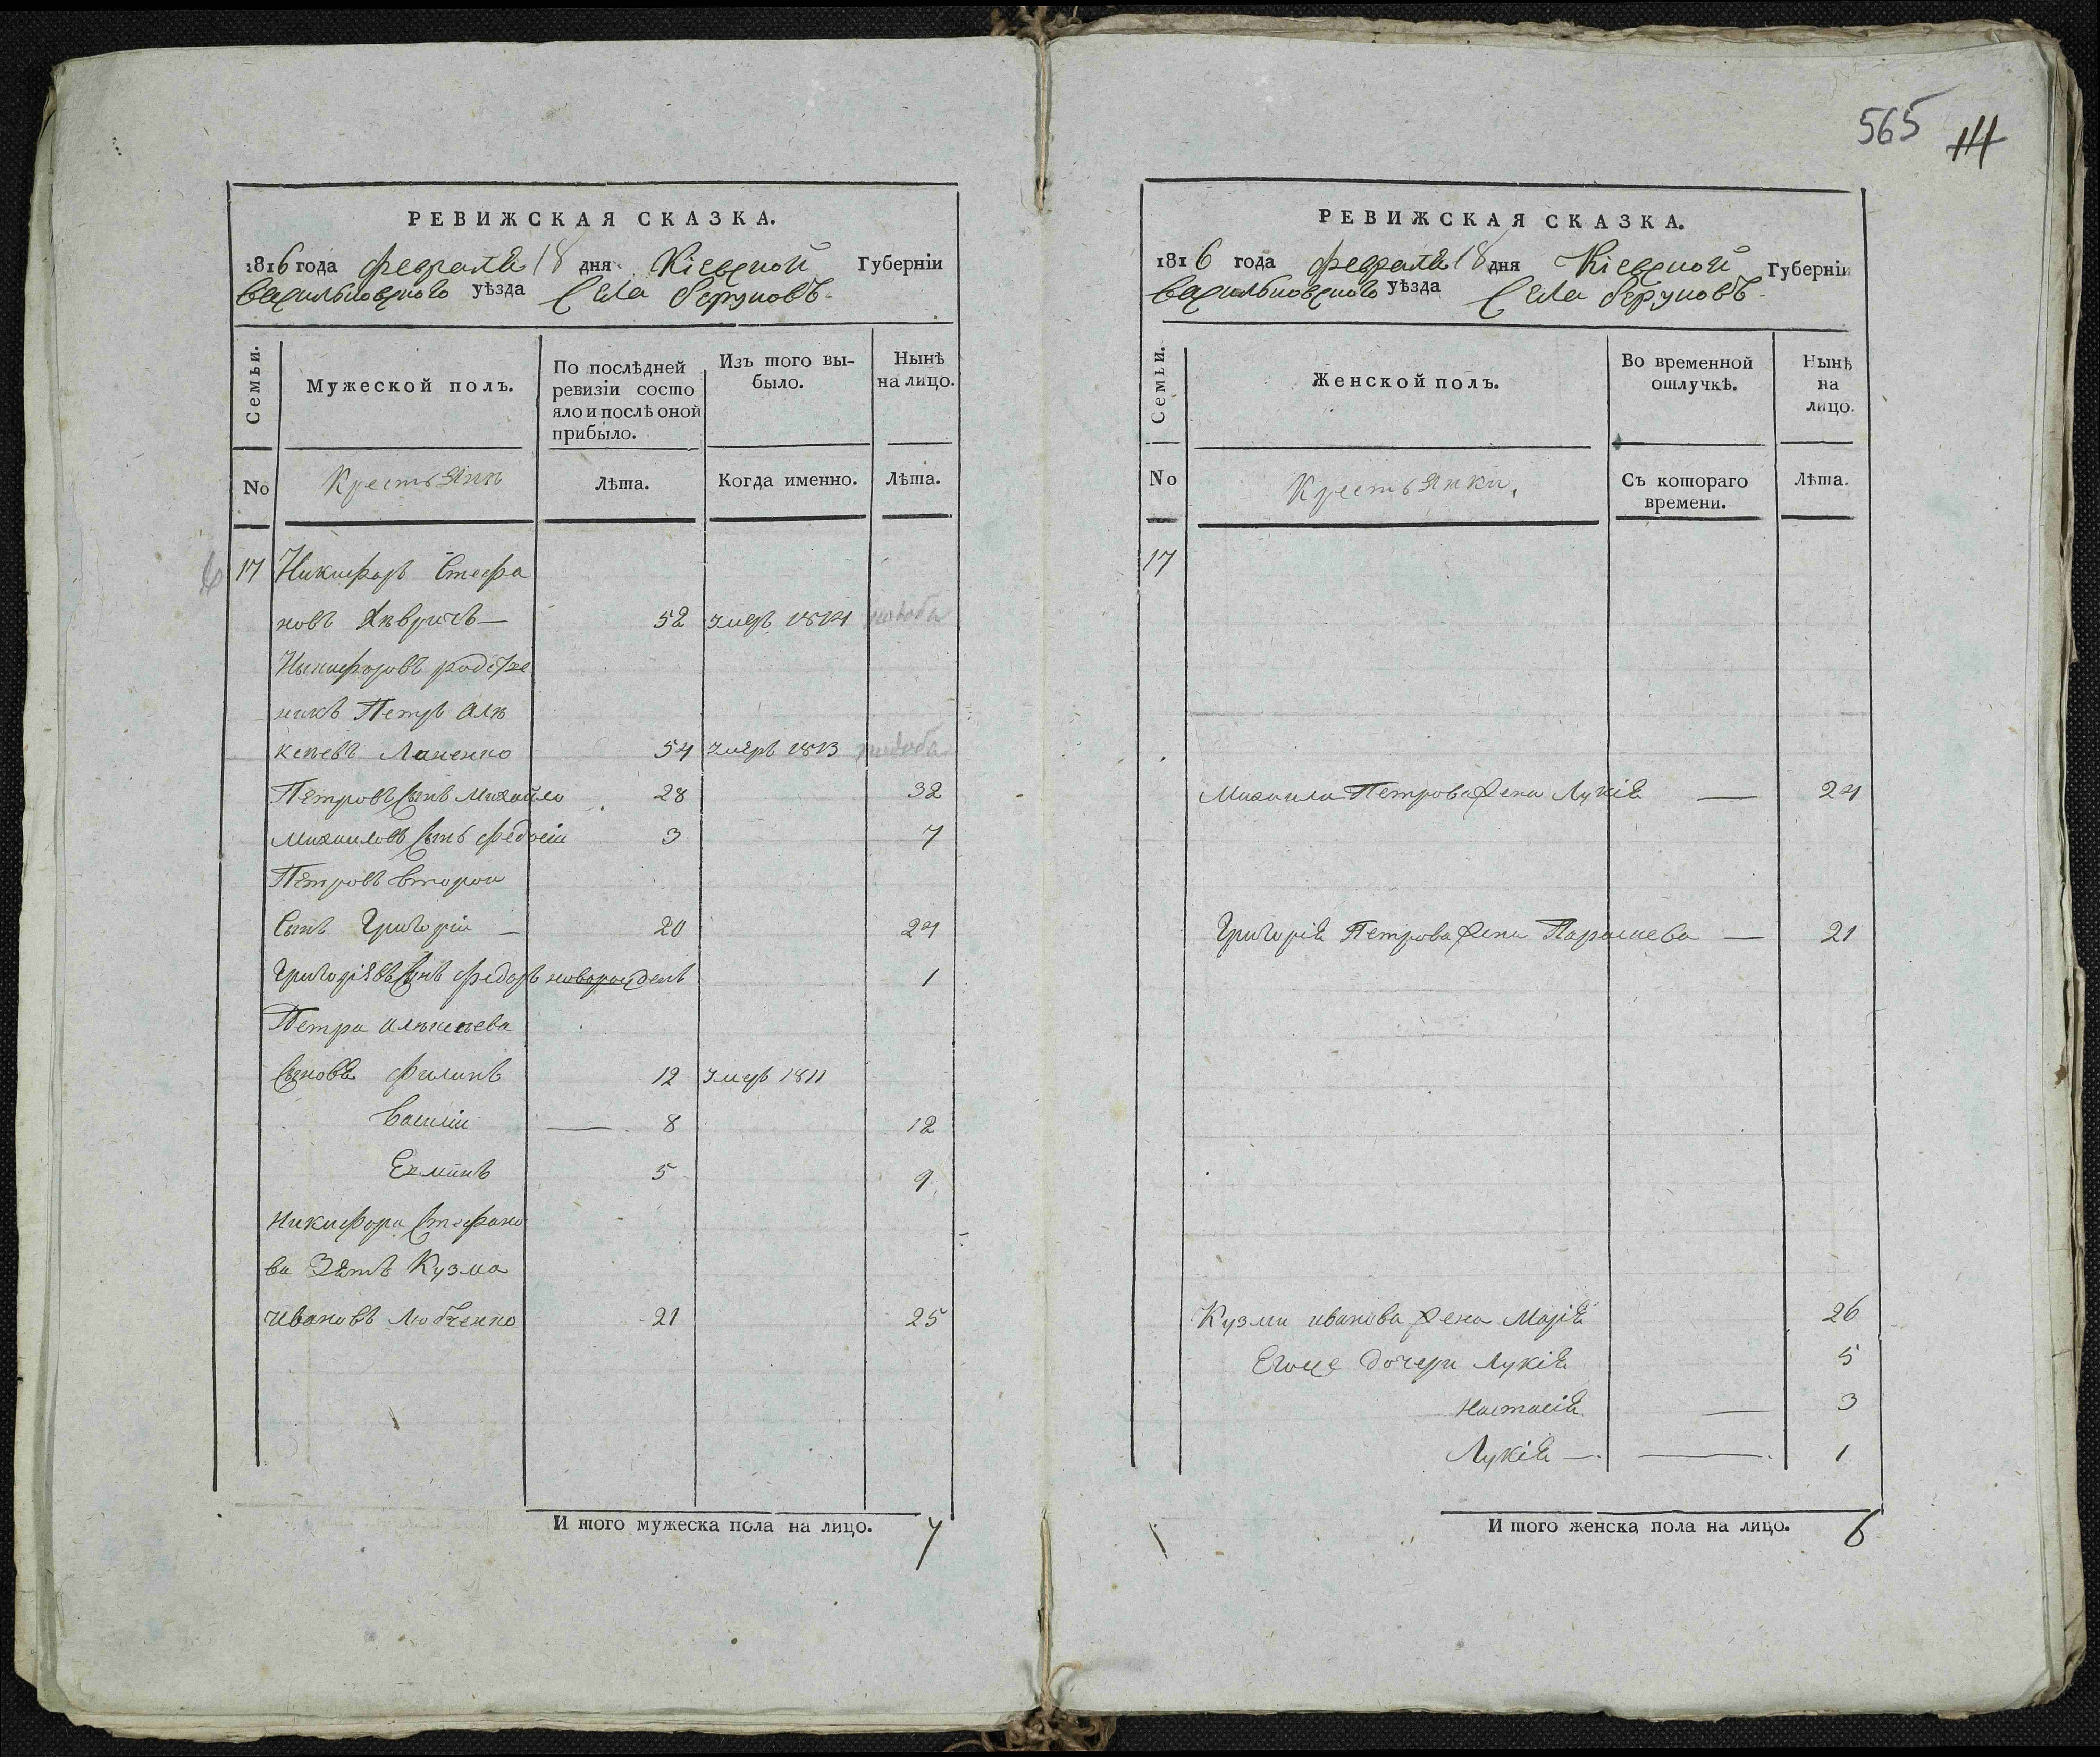 РЕВИЖСКАЯ СКАЗКА.
1816 года февраля 18 дня Кіевской Губерніи
Васильковского уѣзда Села
Семьи. Мужеской полъ. По послѣдней ревизіи состояло и послѣ оной прибыло. Изъ того выбыло. Нынѣ на лицо.
No Крестьяне Лѣта. Когда именно. Лѣта.
17 Никифоръ Стефа
новъ — 52 Умеръ 1814
Никифоровъ
никъ Петръ Але
ксеевъ 54 Умеръ 1813
Петровъ Сынъ Михайло 28 32
Михайловъ Сынъ Федосій 3 7
Петровъ второй
Сынъ Григорій — 20 24
Григоріевъ Сынъ Федоръ новорожденъ 1
Петра Алексеева
Сыновя Филипъ 12 Умеръ 1811
Василій — 8 12
5 9
Никифора Стефано
ва Зять Кузма
Ивановъ Любченко 21 25
И того мужеска пола на лицо. 7
565 114
РЕВИЖСКАЯ СКАЗКА.
1816 года февраля 18 дня Кіевской Губерніи
Васильковского уѣзда Села
Семьи. Женской полъ. Во временной отлучкѣ. Нынѣ на лицо.
No Крестьянки. Съ котораго времени. Лѣта.
17
Михаила Петрова жена Лукія — 24
Григорія Петрова жена Параскева — 21
Кузми Иванова жена Марія 26
Егоже дочери Лукія 5
Настасія — 3
Лукія — — 1
И того женска пола на лицо. 6